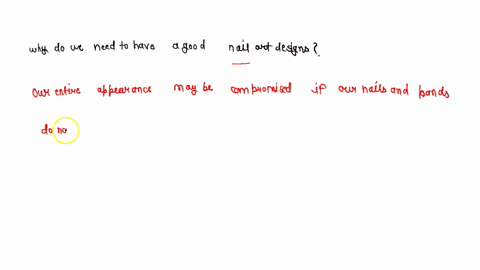 why do we need to have a good nail art designs?
our entire appearance may be compromised if our nails and hands
do no